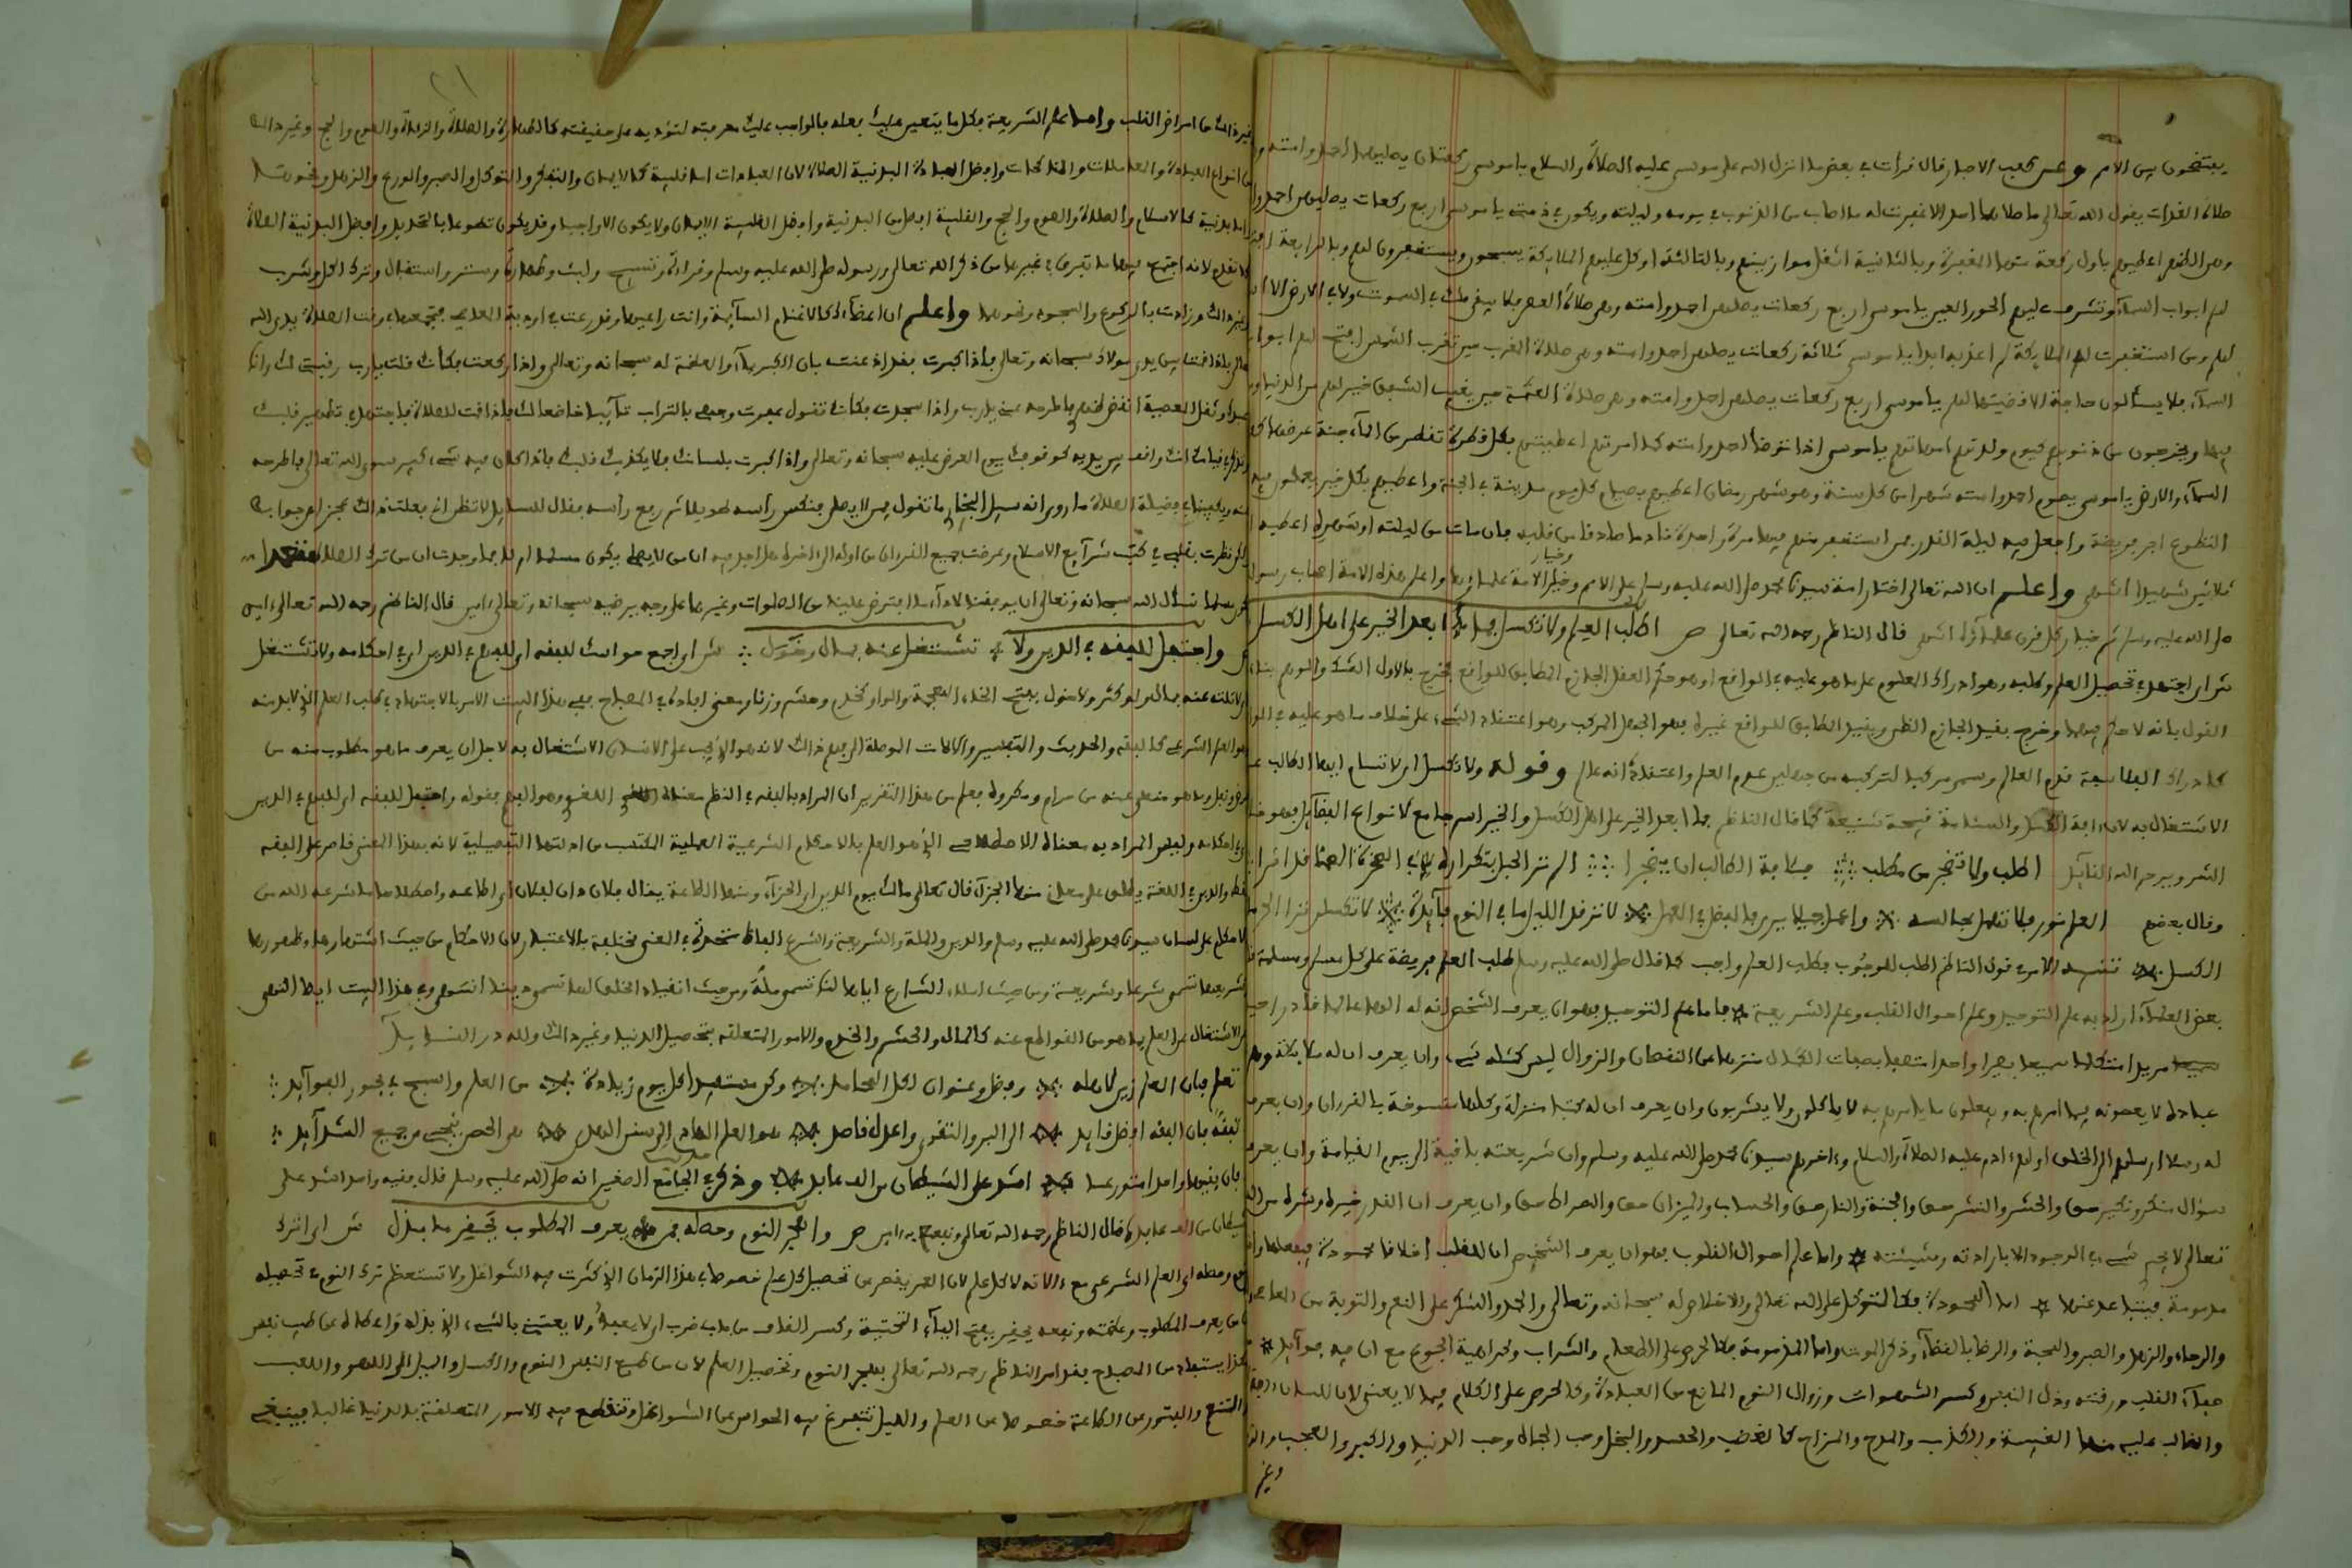 يفتخون بين الأمم وعن كعب الاحبار قال قرأت في بعض ما انزل الله على موسى عليه الصلاة والسلام يا موسى ركعتان يصليهما احمد وامته و
صلاة الغداة يقول الله تعالى ما صلاهما احد الا غفرت له ما اصاب من الذنوب في يومه وليلته ويكون في ذمتي يا موسى اربع ركعات يصليهن احمد وا
وهي الظهر اعطيهم باول ركعة منها المغفرة وبالثانية اثقل موازينهم وبالثالثة اوكل عليهم الملائكة يسبحون ويستغفرون لهم وبالرابعة افتح
لهم ابواب السماء وتشرف عليهم الحور العين يا موسى اربع ركعات يصليهن احمد وامته وهي صلاة العصر فلا يبقى ملك في السموات ولا في الارض الا ا
لهم ومن استغفرت له الملائكة لم اعذبه ابدا يا موسى ثلاثة ركعات يصليهن احمد وامته وهي صلاة المغرب حين تغرب الشمس افتح لهم ابواب
السماء فلا يسألون حاجة الا قضيتها لهم يا موسى اربع ركعات يصليهن احمد وامته وهي صلاة العتمة حين يغيب الشفق خير لهم من الدنيا وما
فيها ويخرجون من ذنوبهم كيوم ولدتهم امهاتهم يا موسى اذا توضأ احمد وامته كما امرتهم اعطيتهم بكل قطرة تقطر من الماء جنة عرضها كعرض
السماء والارض يا موسى يصوم احمد وامته شهرا من كل سنة وهو شهر رمضان اعطيهم بصيام كل يوم مدينة في الجنة واعطيهم بكل خير يعملون فيه
التطوع اجر فريضة واجعل فيه ليلة القدر من استغفر منهم فيها مرة واحدة نادما صادقا من قلبه فان مات من ليلته او شهره اعطيه ا
ثلاثين شهيدا انتهى واعلم ان الله تعالى اختار امة سيدنا محمد صلى الله عليه وسلم على الامم وخيار الامة علماؤها واعلم هذه الامة اصحاب رسول
صلى الله عليه وسلم ثم خيار كل قرن علماؤه انتهى قال الناظم رحمه الله تعالى ص اطلب العلم ولا تكسل فما أبعد الخير على اهل الكسل
ش اي اجتهد في تحصيل العلم وطلبه وهو ادراك المعلوم على ما هو عليه في الواقع او هو حكم العقل الجازم المطابق للواقع فخرج بالاول الشك والوهم بناء
القول بانه لا حكم فيهما وخرج بقيد الجازم الظن وبقيد المطابق للواقع غيره فهو الجهل المركب وهو اعتقاد الشيء على خلاف ما هو عليه في الوا
كادراك الفلاسفة قدم العالم وسمي مركبا لتركبه من جهلين عدم العلم واعتقاده انه عالم وقوله ولا تكسل اي لا تسأم ايها الطالب عن
الاشتغال به لان رابة الكسل والسئامة قبيحة شنيعة كما قال الناظم فما ابعد الخير على اهل الكسل والخير اسم جامع لانواع الفضائل فهو ضد
الشر ويرحم الله القائل اطلب ولا تضجر من مطلب فآفة الطالب ان يضجرا الم تر الحبل بتكراره في الصخرة الصماء قد اثرا
وقال بعضهم العلم نور فلا تهمل مجالسه واعمل جميلا يرى بالفضل في العمل لا ترقد الليل ما في النوم فائدة لا تكسلن ترى الحرمان في
الكسل تنبيه الامر في قول الناظم اطلب للوجوب فطلب العلم واجب كما قال صلى الله عليه وسلم طلب العلم فريضة على كل مسلم ومسلمة
بعض العلماء اراد به علم التوحيد وعلم احوال القلب وعلم الشريعة فاما علم التوحيد فهو ان يعرف الشخص انه له الها عالما قادرا حيا
مريدا متكلما سميعا بصيرا واحدا متصفا بصفات الكمال منزها عن النقصان والزوال ليس كمثله شيء وان يعرف ان له ملائكة وهم
عباده لا يعصونه فيما امرهم به ويفعلون ما يأمرهم به لا يأكلون ولا يشربون وان يعرف ان له كتبا منزلة وكلها منسوخة بالقرءان وان يعرف
له رسلا ارسلهم الى الخلق اولهم ءادم عليه الصلاة والسلام وءاخرهم سيدنا محمد صلى الله عليه وسلم وان شريعته باقية الى يوم القيامة وان يعرف
سؤال منكر ونكير حق والحشر والنشر حق والجنة والنار حق والحساب والميزان حق والصراط حق وان يعرف ان القدر خيره وشره من الله
تعالى لا يجري شيء في الوجود الا بارادته ومشيئته واما علم احوال القلوب فهو ان يعرف الشخص ان للقلب اخلاقا محمودة فيفعلها واخلاقا
مذمومة فيتباعد عنها اما المحمودة فكالتوكل على الله تعالى والاخلاص له سبحانه وتعالى والحمد والشكر على النعم والتوبة من المعاصي
والرجاء والزهد والصبر والمحبة والرضا بالقضاء وذكر الموت واما المذمومة فكالحرص على الطعام والشراب وكراهية الجوع مع ان فيه فوائد
صفاء القلب ورقته وذل النفس وكسر الشهوات وزوال النوم المانع من العبادة وكالحرص على الكلام فيما لا يعني لان اللسان
والغالب عليه الغيبة والكذب والمدح والمزاح كالغضب والحسد والبخل وحب الجاه وحب الدنيا والكبر والعجب والرياء
وغير
غير ذالك من امراض القلب واما علم الشريعة فكل ما يتعين عليك فعله فالواجب عليك معرفته لتؤديه على حقيقته كالطهارة والصلاة والزكاة والصوم والحج وغير ذالك
من انواع العبادة والمعاملات والمناكحات وافضل العبادة البدنية الصلاة لان العبادات اما قلبية كالايمان والتفكر والتوكل والصبر والورع والزهد ونحوها
واما بدنية كالاسلام والصلاة والصوم والحج والقلبية افضل من البدنية وافضل القلبية الايمان ولا يكون الا واجبا وقد يكون تطوعا بالتجديد وافضل البدنية الصلاة
كما تقدم لانه اجتمع فيها ما تفرق في غيرها من ذكر الله تعالى ورسوله صلى الله عليه وسلم وقراءة وتسبيح ولبث وطهارة وستر واستقبال وترك اكل وشرب
وغير ذالك وزادت بالركوع والسجود ونحوها واعلم ان اعضاءك كالاغنام السائبة وانت راعيها وقد رعت في اودية المعاصي فجمعها في وقت الصلاة بين يدي الله
تعالى فاذا قمت بين يدي مولاك سبحانه وتعالى فاذا كبرت فقد اذعنت بان الكبرياء والعظمة له سبحانه وتعالى واذا ركعت فكأنك قلت يا رب رقبتي لك وانا
عبدك وثقل المعصية انقض ظهري فاطرحه عني يا رب واذا سجدت فكأنك تقول عفرت وجهي بالتراب تائبا خاضعا لك فاذا قمت للصلاة فاجتهد في تطهير قلبك
وتذكر في قيامك انك واقف بين يديه كوقوفك يوم العرض عليه سبحانه وتعالى واذا كبرت بلسانك فلا يكذبك قلبك فاذا كان فيه شيء كبير سوى الله تعالى فاطرحه
عنه ويكفينا في فضيلة الصلاة ما روي انه سئل ما تقول فيمن لا يصلي فنكس رأسه طويلا ثم رفع رأسه فقال للسائل لا تنظر اني فعلت ذالك عجزا عن جوابك
ولكن نظرت بقلبي في كتب شرائع الاسلام وعرضت جميع القرءان من اوله الى ءاخره هل اجد فيه ان من لا يصلي يكون مسلما ام لا فما وجدت ان من ترك الصلاة
يكون مسلما نسأل الله سبحانه وتعالى ان يوفقنا لاداء ما افترض علينا من الصلوات وغيرها على وجه يرضيه سبحانه وتعالى ءامين قال الناظم رحمه الله تعالى ءامين
ص واحتفل للفقه في الدين ولا تشتغل عنه بمال وخول ش اي اجمع حواسك للفقه اي للفهم في الدين اي في احكامه ولا تشتغل
اي لا تلته عنه بمال ولو كثر ولا خول بفتح الخاء المعجمة والواو كخدم وحشم وزنا ومعنى افاده في المصباح ففي هذا البيت الامر بالاجتهاد في طلب العلم الذي لابد منه
وهو العلم الشرعي كالفقه والحديث والتفسير والالات الموصلة الى فهم ذالك لانه هو الذي يجب على الانسان الاشتغال به لاجل ان يعرف ما هو مطلوب منه من
فرض ونفل وما هو منهي عنه من حرام ومكروه فعلم من هذا التقرير ان المراد بالفقه في النظم معناه اللغوي وهو الفهم فقوله واحتفل للفقه اي للفهم في الدين
اي في احكامه وليس المراد به معناه الاصطلاحي الذي هو العلم بالاحكام الشرعية العملية المكتسب من ادلتها التفصيلية لانه بهذا المعنى قاصر على الفقه
فقط والدين في اللغة يطلق على معان منها الجزاء قال تعالى مالك يوم الدين اي الجزاء ومنها الطاعة يقال فلان دان لفلان اي اطاعه واصطلاحا ما شرعه الله من
الاحكام على لسان سيدنا محمد صلى الله عليه وسلم والدين والملة والشريعة والشرع الفاظ متحدة في المعنى مختلفة بالاعتبار لان الاحكام من حيث اشتهارها وظهورها
تسمى شرعا وشريعة ومن حيث املاء الشارع اياها لنا تسمى ملة ومن حيث انقياد الخلق لها تسمى دينا انتهى وفي هذا البيت ايضا النهي
عن الاشتغال عن العلم بما هو من القواطع عنه كالمال والحشم والخدم والامور المتعلقة بتحصيل الدنيا وغير ذالك ولله در القائل
تعلم فان العلم زين لاهله وفضل وعنوان لكل المحامد وكن مستفيدا كل يوم زيادة من العلم واسبح في بحور الفوائد
تفقه فان الفقه افضل قائد الى البر والتقوى واعدل قاصد هو العلم الهادي الى سنن الهدى هو الحصن ينجي من جميع الشدائد
فان فقيها واحدا متورعا اشد على الشيطان من الف عابد وذكر في الجامع الصغير انه صلى الله عليه وسلم قال فقيه واحد اشد على
الشيطان من الف عابد قال الناظم رحمه الله تعالى ونفعنا به ءامين ص واهجر النوم وحصله فمن يعرف المطلوب يحقر ما بذل ش اي اترك
النوم وحصله اي العلم الشرعي مع ءالاته لا كل علم لان العمر يقصر عن تحصيل كل علم خصوصا في هذا الزمان الذي كثرت فيه الشواغل ولا تستعظم ترك النوم في تحصيله
فان من يعرف المطلوب وعظمته ونفعه يحقر بفتح الياء التحتية وكسر القاف من باب ضرب اي لا يعبأ ولا يعتني بالشيء الذي بذله واعطاه عن طيب نفس
هكذا يستفاد من المصباح فقد امر الناظم رحمه الله تعالى بهجر النوم وتحصيل العلم لان من طبع النفس النوم والكسل والميل الى اللهو واللعب
والتشبع والفتور عن الطاعة خصوصا عن العلم والليل تتفرغ فيه الحواس عن الشواغل وتنقطع فيه الامور المتعلقة بالدنيا غالبا فينبغي